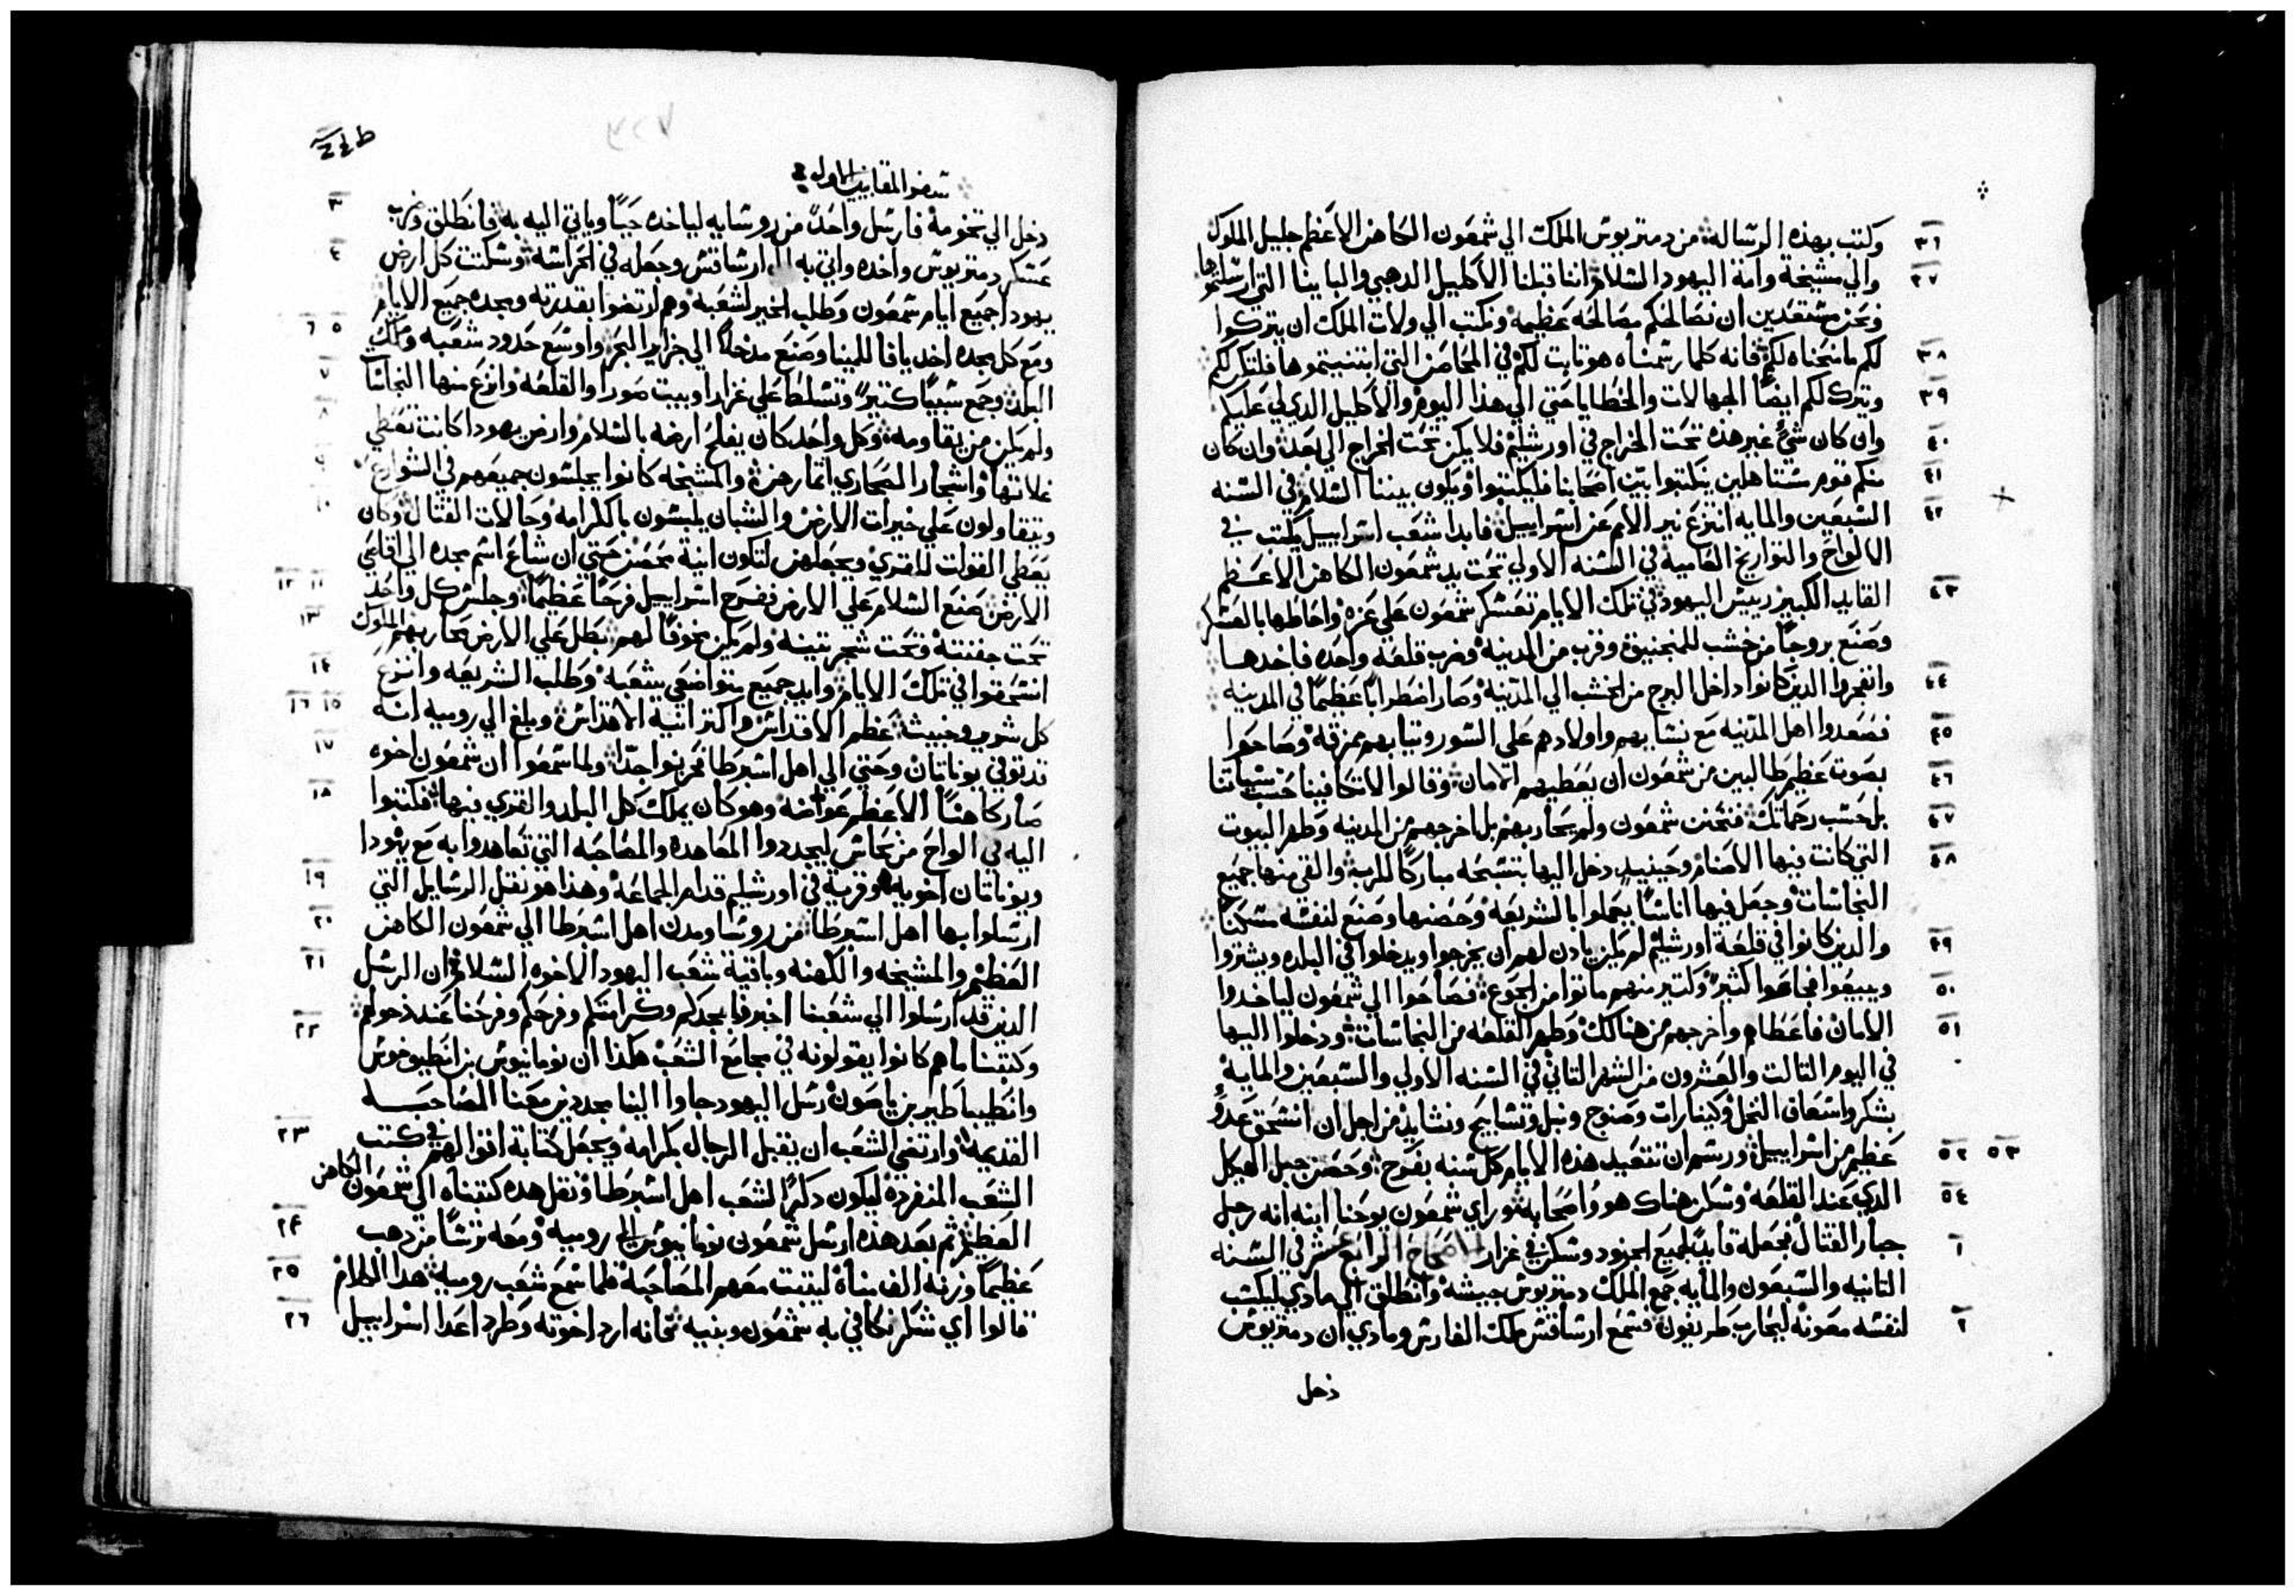 ٣٦ وكتب بهذه الرساله من دمتريوس الملك الي شمعون الكاهن الاعظم خليل الملوك
٣٧ والي مشيخة وامة اليهود السلام اننا قبلنا الاكليل الدهبي والبابينا التي ارسلتموها
ونحن مستعدين ان نصالحكم مصالحه عظيمه ونكتب الي ولات الملك ان يتركوا
٣٨ لكم ما منحناه لكم فانه كلما رسمناه هو تابت لكم في المحاصن التي ابتنيتموها فلتكن لكم
٣٩ ونترك لكم ايضًا الجهالات والخطايا حتي الي هذا اليوم والاكليل الدي لي عليكم
٤٠ وان كان شيء غير هذه تحت الخراج في اورشليم فلا يكن تحت الخراج الي بعد وان كان
٤١ منكم قوم مستاهلين ينكتبوا بين اصحابنا فليكتبوا ويكون بيننا السلام في السنه
٤٢ السبعين والمايه انتزع نير الامم عن اسراييل فابدا شعب اسراييل يكتب في
الالواح والتواريخ العاميه في السنه الاولي تحت يد شمعون الكاهن الاعظم
٤٣ القايد الكبير رييس اليهود في تلك الايام تعسكر شمعون علي غزه واحاطها بالعسكر
وصنع بروجًا من خشب للمنجنيق وقرب من المدينه وضرب قلعه واحده فاخدها
٤٤ وانفجروا الدين كانوا داخل البرج من الخشب الي المدينه وصار اضطرابًا عظيمًا في المدينه
٤٥ فصعدوا اهل المدينه مع نسايهم واولادهم علي السور وتيابهم ممزقه وصاحوا
٤٦ بصوت عظيم طالبين من شمعون ان يعطيهم الامان وقالوا لا تكافينا حسب سياتنا
٤٧ بل حسب رحماتك فتحنن شمعون ولم يحاربهم بل اخرجهم من المدينه وطهر البيوت
٤٨ التي كانت فيها الاصنام وحينيد دخل اليها بتسبحه مباركًا للرب والقي منها جميع
النجاسات وجعل فيها اناسًا يعملوا بالشريعه وحصنها وصنع لنفسه مسكنًا
٤٩ والدين كانوا في قلعة اورشليم لم يكن يادن لهم ان يخرجوا ويدخلوا في البلده ويشتروا
٥٠ ويبيعوا فجاعوا كثير وكتير منهم ماتوا من الجوع فصاحوا الي شمعون لياخدوا
٥١ الامان فاعطاهم واخرجهم من هنالك وطهر القلعه من النجاسات ودخلوا اليها
في اليوم التالت والعشرون من الشهر التاني في السنه الاولي والسبعين والمايه
بشكر واسعاف النخل وكينارات وصنوج ونبل وتسابيح ونشايد من اجل ان انسحق عدو
٥٢ ٥٣ عظيم من اسراييل ورسم ان تتعيد هذه الايام كل سنه بفرح وحصن جبل الهيكل
٥٤ الدي عند القلعه وسكن هناك هو واصحابه وراي شمعون يوحنا ابنه انه رجل
١ جبار القتال فجعله قايد لجميع الجنود وسكن في غزار الاصحاح الرابع عشر في السنه
التانيه والسبعون والمايه جمع الملك دمتريوس جيشه وانطلق الي مادي ليكتسب
٢ لنفسه معونه ليحارب طريفون فسمع ارساقس ملك الفارس ومادي ان دمتريوس
دخل
سفر المقابيين الاول
دخل الي تخومه فارسل واحدً من روسايه لياخده حيًا وياتي اليه به فانطلق وضرب ٣
عسكر دمتريوس واخده واتي به الي ارساقس وجعله في الحراسه وسكنت كل ارض ٤
يهودا جميع ايام شمعون وطلب الخير لشعبه وهم ارتضوا بقدرته وبمجده جميع الايام
ومع كل مجده اخد يافا للمينا وصنع مدخلاً الي جزاير البحر واوسع حدود شعبه وملك ٥ ٦
البلد وجمع سبيًا كتيرً وتسلط علي غزارا وبيت صورا والقلعه وانزع منها النجاسات ٧
ولم يكن من يقاومه وكل واحد كان يفلح ارضه بالسلام وارض يهودا كانت تعطي ٨
غلاتها واشجار الصحاري اتمارهن والمشيخه كانوا يجلسون جميعهم في الشوارع ٩
ويتفاولون علي خيرات الارض والشبان يلبسون بالكرامه وحالات القتال وكان ١٠
يعطي القوات للقري ويجعلهن لتكون انية محصن حتي ان شاع اسم مجده الي اقاصي
الارض صنع السلام علي الارض ففرح اسراييل فرحًا عظيمًا وجلس كل واحد ١١ ١٢
تحت جفنته وتحت شجر تينه ولم يكن مخوفًا لهم بطل علي الارض محاربهم الملوك ١٣
انسحقوا في تلك الايام وايد جميع متواضعي شعبه وطلب الشريعه وانتزع ١٤
كل شرير وخبيث عظم الاقداس واكتر انية الاقداس وبلغ الي روميه انه ١٥ ١٦
قد توفي يوناتان وحتي الي اهل اسبرطا فحزنوا جدًا ولما سمعوا ان شمعون اخوه ١٧
صار كاهنًا الاعظم عواضه وهو كان يملك كل البلد والقري فيها فكتبوا ١٨
اليه في الواح من نحاس ليجددوا المعاهده والمصاحبه التي تعاهدوا به مع يهودا
ويوناتان اخويه وقريت في اورشليم قدام الجماعه وهذا هو نقل الرسايل التي ١٩
ارسلوا بها اهل اسبرطا من روسا ومدن اهل اسبرطا الي شمعون الكاهن ٢٠
العظيم والمشيخه والكهنه وباقية شعب اليهود الاخوه السلام ان الرسل ٢١
الدين قد ارسلوا الي شعبنا اخبرونا بمجدكم وكرامتكم وفرحكم وفرحنا عند دخولهم
وكتبنا ما هم كانوا يقولونه في مجامع الشعب هكذا ان نومانيوس بن انطيوخوس ٢٢
وانطيباطير بن ياصون رسل اليهود جاوا الينا مجددين معنا المصاحبه
القديمه وارتضي الشعب ان يقبل الرجال بكرامه ويجعل كتابة اقوالهم في كتب ٢٣
الشعب المنفرده ليكون دكرًا لشعب اهل اسبرطا ونقل هده كتبناه الي شمعون الكاهن
العظيم ثم بعد هذه ارسل شمعون نومانيوس الي روميه ومعه ترسًا من دهب ٢٤
عظيمًا وزنه الف مناه ليتبت معهم المصاحبه فلما سمع شعب روميه هدا الكلام ٢٥
قالوا اي شكر نكافي به شمعون وبنيه فانه ارد اخوته وطرد اعدا اسراييل ٢٦